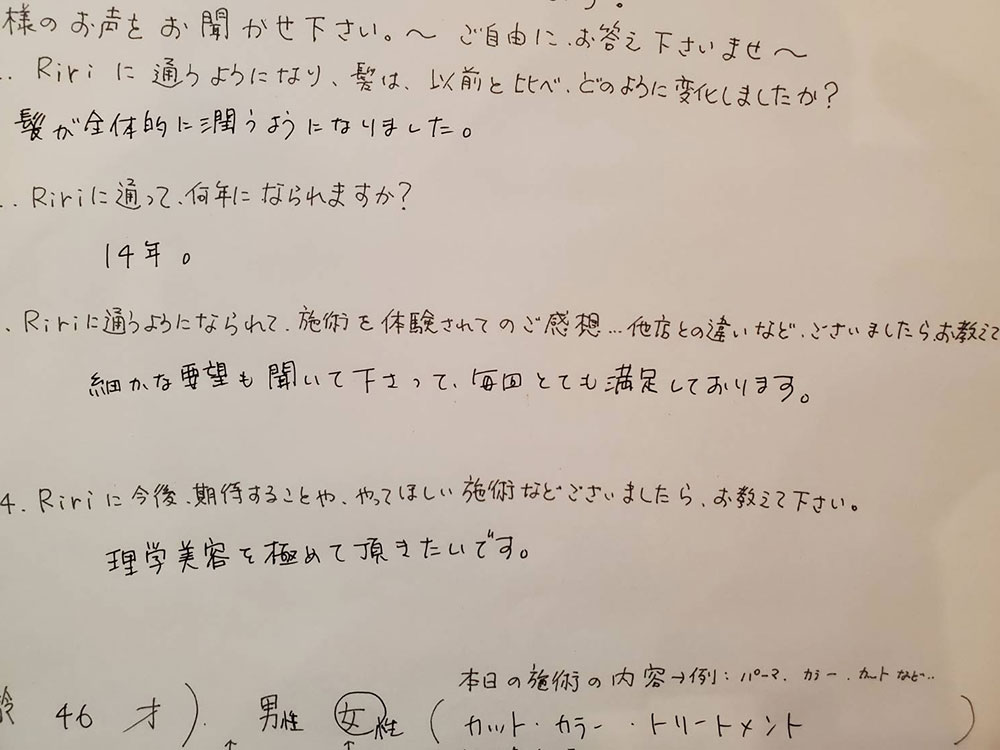 様のお声をお聞かせ下さい。～ ご自由に、お答え下さいませ～
Ririに通うようになり、髪は、以前と比べ、どのように変化しましたか？
髪が全体的に潤うようになりました。
Ririに通って、何年になられますか？
14年。
Ririに通うようになられて、施術を体験されてのご感想…他店との違いなど、ございましたら、お教えて
細かな要望も聞いて下さって、毎回とても満足しております。
4. Ririに今後、期待することや、やってほしい施術などございましたら、お教えて下さい。
理学美容を極めて頂きたいです。
本日の施術の内容→例：パーマ、カラー、カットなど..
齢 46 才) 男性 女性 (カット・カラー・トリートメント )
↑ ↑